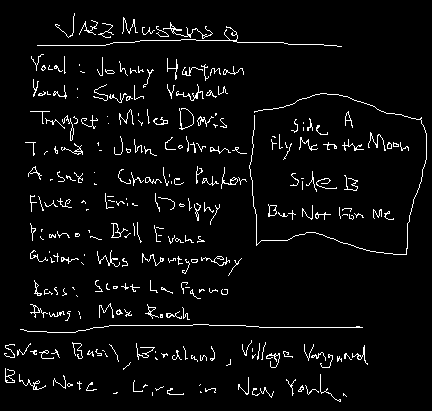 Jazz Masters
Vocal: Johnny Hartman
Vocal: Sarah Vaughan
Trumpet: Miles Davis
T. sax: John Coltrane
A. sax: Charlie Parker
Flute: Eric Dolphy
Piano: Bill Evans
Guitar: Wes Montgomery
Bass: Scott La Farro
Drums: Max Roach
Side A
Fly Me to the Moon
Side B
But Not For Me
Sweet Basil, Birdland, Village Vanguard
Blue Note, Live in New York.